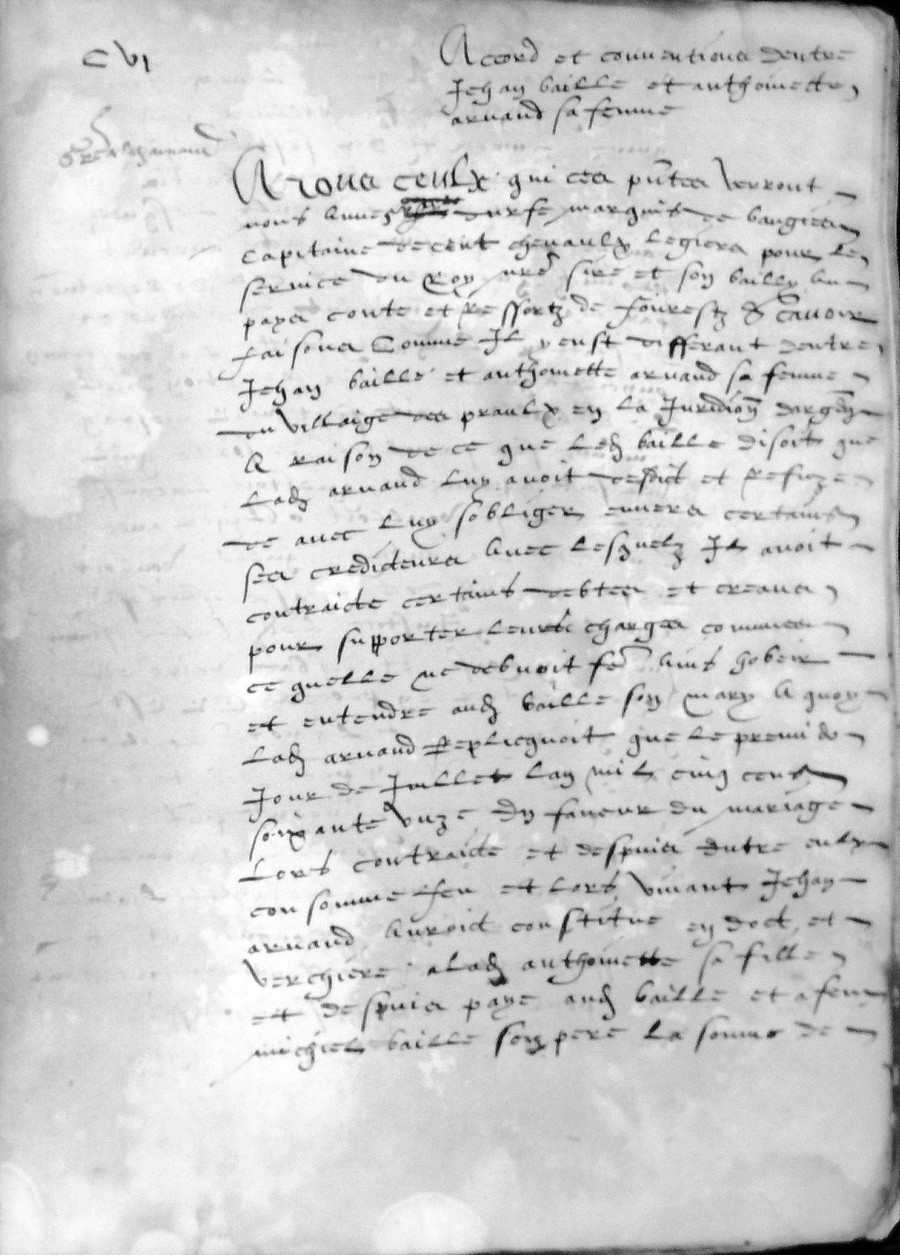 CVI
Accord et conventions dentre
Jehan baille et anthoinette
arnaud sa femme
A tous ceulx qui ces pntes verront
nous Annes durfe marquis de baugies
Capitaine de cent chevaulx legiers pour le
service du Roy nre sire et son bailly au
pays conte et ressortz de fourestz scavoir
faisons Comme Il y eust differant dentre
Jehan baille et anthoinette arnaud sa femme
du villaige des praulx en la Juridion
A raison de ce que led baille disoit que
lad arnaud luy avoit desdict et refuze
de avec luy sobliger envers certains
ses crediteurs avec lesquelz Il avoit
contraicte certains debtes et creans
pour supporter leurs charges communes
ce quelle ne debvoit fe ains hobeir
et entendre aud baille son mary A quoy
lad arnaud replicquoit que le premi de
Jour de Juillet lan mil cinq cens
soixante unze En faveur du mariage
lors contraicte et despuis entre eulx
consomme feu et lors vivant Jehan
arnaud Auroict constitue en doct et
verchiere a lad anthoinette sa fille
et despuis paye aud baille et a feu
michiel baille son pere la somme de